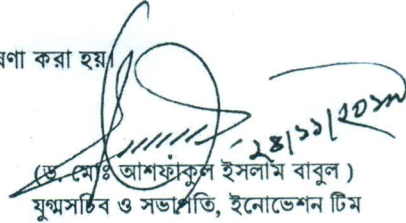 ষণা করা হয়।
২৪/১১/২০১৯
(ড. মোঃ আশফাকুল ইসলাম বাবুল )
যুগ্মসচিব ও সভাপতি, ইনোভেশন টিম